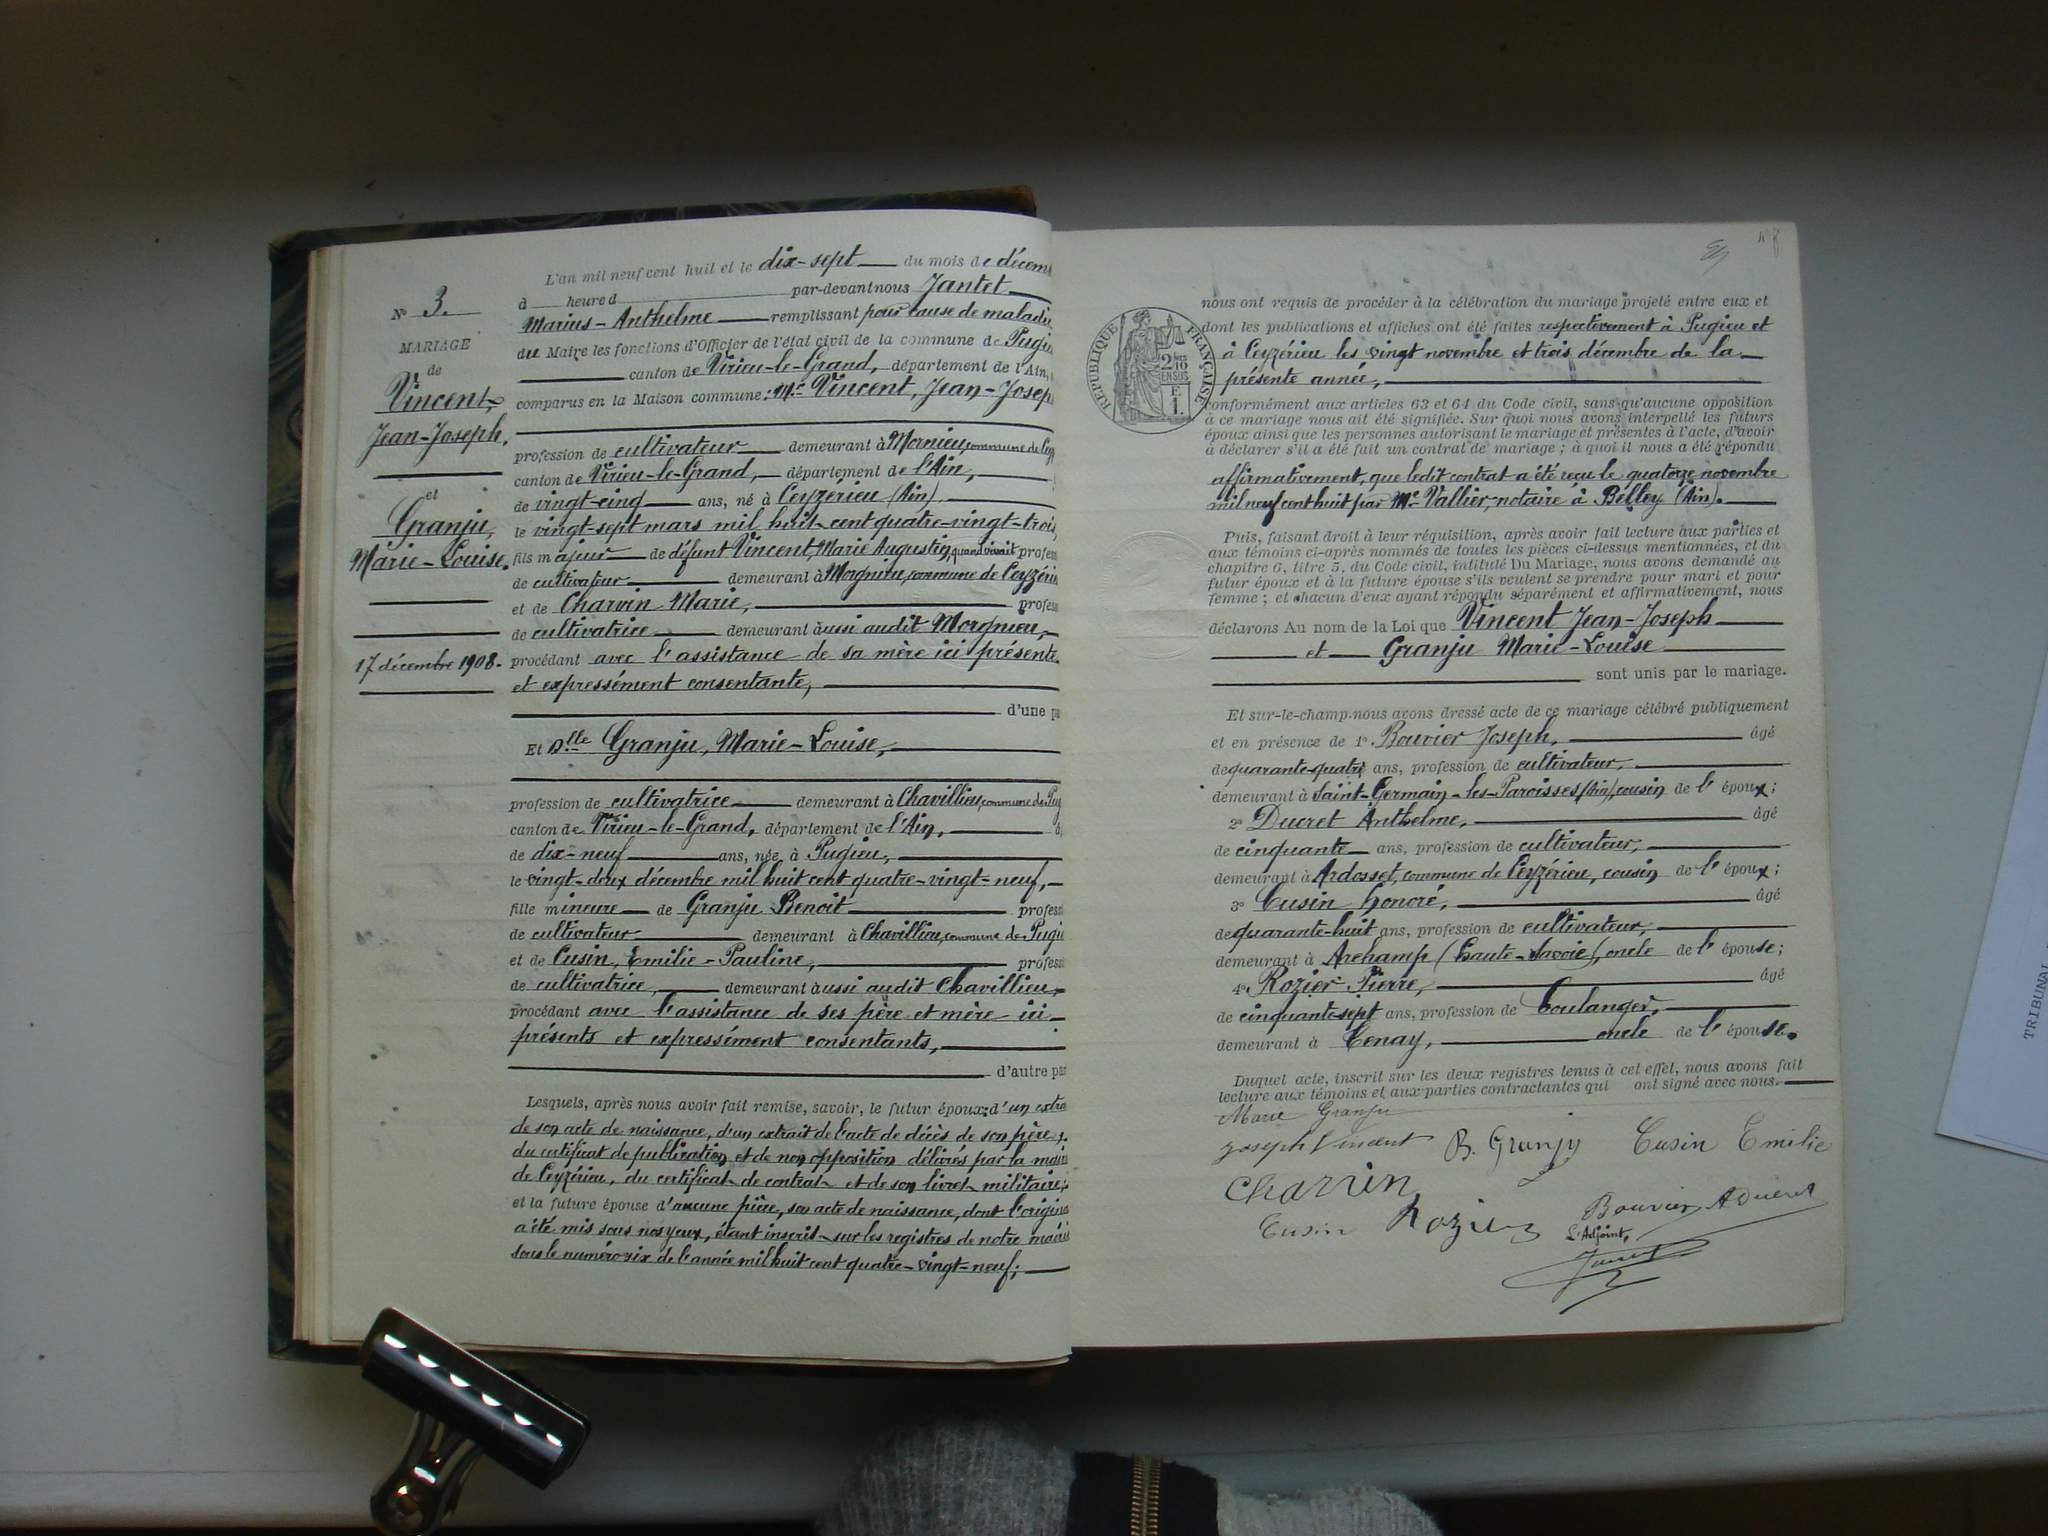 Nº 3.
MARIAGE
de
Vincent,
Jean-Joseph.
et
Granju,
Marie-Louise.
17 décembre 1908.
L'an mil neuf cent huit et le dix-sept du mois de décem
à heure d par-devant nous Jantet
Marius-Anthelme remplissant pour cause de maladie
du Maire les fonctions d'Officier de l'état civil de la commune de Pugieu
canton de Virieu-le-Grand, département de l'Ain,
comparus en la Maison commune: Mr Vincent, Jean-Josep
profession de cultivateur demeurant à Mornieu, commune de Cey
canton de Virieu-le-Grand, département de l'Ain,
de vingt-cinq ans, né à Ceyzerieu (Ain)
le vingt-sept mars mil huit-cent quatre-vingt-trois,
fils majeur de défunt Vincent, Marie Augustin, quand vivait profess
de cultivateur demeurant à Morgnieu, commune de Ceyzérie
et de Charvin Marie, profess
de cultivatrice demeurant à aussi audit Morgnieu,
procédant avec l'assistance de sa mère ici présente
et expressément consentante,
d'une pa
Et Dlle Granju, Marie-Louise,
profession de cultivatrice demeurant à Chavillieu, commune de Pug
canton de Virieu-le-Grand, département de l'Ain,
de dix-neuf ans, née à Pugieu,
le vingt-deux décembre mil huit cent quatre-vingt-neuf,
fille mineure de Granju Benoit profess
de cultivateur demeurant à Chavillieu, commune de Pugi
et de Cusin, Emilie-Pauline, profess
de cultivatrice, demeurant à aussi audit Chavillieu,
procédant avec l'assistance de ses père et mère ici
présents et expressément consentants,
d'autre par
Lesquels, après nous avoir fait remise, savoir, le futur époux: d'un extra
de son acte de naissance, d'un extrait de l'acte de décès de son père,
du certificat de publication et de non opposition délivrés par la mairi
de Ceyzérieu, du certificat de contrat et de son livret militaire;
et la future épouse d'aucune pièce, son acte de naissance, dont l'origina
a été mis sous nos yeux, étant inscrit sur les registres de notre mairi
sous le numéro six de l'année mil huit cent quatre-vingt-neuf;
RÉPUBLIQUE FRANÇAISE
2/10
EN SUS
F.
1.
nous ont requis de procéder à la célébration du mariage projeté entre eux et
dont les publications et affiches ont été faites respectivement à Pugieu et
à Ceyzérieu les vingt novembre et trois décembre de la
présente année,
conformément aux articles 63 et 64 du Code civil, sans qu'aucune opposition
à ce mariage nous ait été signifiée. Sur quoi nous avons interpellé les futurs
époux ainsi que les personnes autorisant le mariage et présentes à l'acte, d'avoir
à déclarer s'il a été fait un contrat de mariage; à quoi il nous a été répondu
affirmativement, que ledit contrat a été reçu le quatorze novembre
mil neuf cent huit par Me Vallier, notaire à Belley (Ain).
Puis, faisant droit à leur réquisition, après avoir fait lecture aux parties et
aux témoins ci-après nommés de toutes les pièces ci-dessus mentionnées, et du
chapitre 6, titre 5, du Code civil, intitulé Du Mariage, nous avons demandé au
futur époux et à la future épouse s'ils veulent se prendre pour mari et pour
femme; et chacun d'eux ayant répondu séparément et affirmativement, nous
déclarons Au nom de la Loi que Vincent Jean-Joseph
et Granju Marie-Louise
sont unis par le mariage.
Et sur-le-champ nous avons dressé acte de ce mariage célébré publiquement
et en présence de 1º Bouvier Joseph, âgé
de quarante-quatre ans, profession de cultivateur,
demeurant à Saint-Germain-les-Paroisses (Ain), cousin de l'époux;
2º Ducret Anthelme, âgé
de cinquante ans, profession de cultivateur,
demeurant à Ardosset, commune de Ceyzérieu, cousin de l'époux;
3º Cusin Honoré, âgé
de quarante-huit ans, profession de cultivateur,
demeurant à Archamp (Haute-Savoie), oncle de l'épouse;
4º Rozier Pierre, âgé
de cinquante-sept ans, profession de boulanger,
demeurant à Tenay, oncle de l'épouse.
Duquel acte, inscrit sur les deux registres tenus à cet effet, nous avons fait
lecture aux témoins et aux parties contractantes qui ont signé avec nous.
Marie Granju
Joseph Vincent B. Granju Cusin Emilie
Charvin
Bouvier A Ducret
Cusin Rozier
L'Adjoint,
Jantet
TRIBUNAL